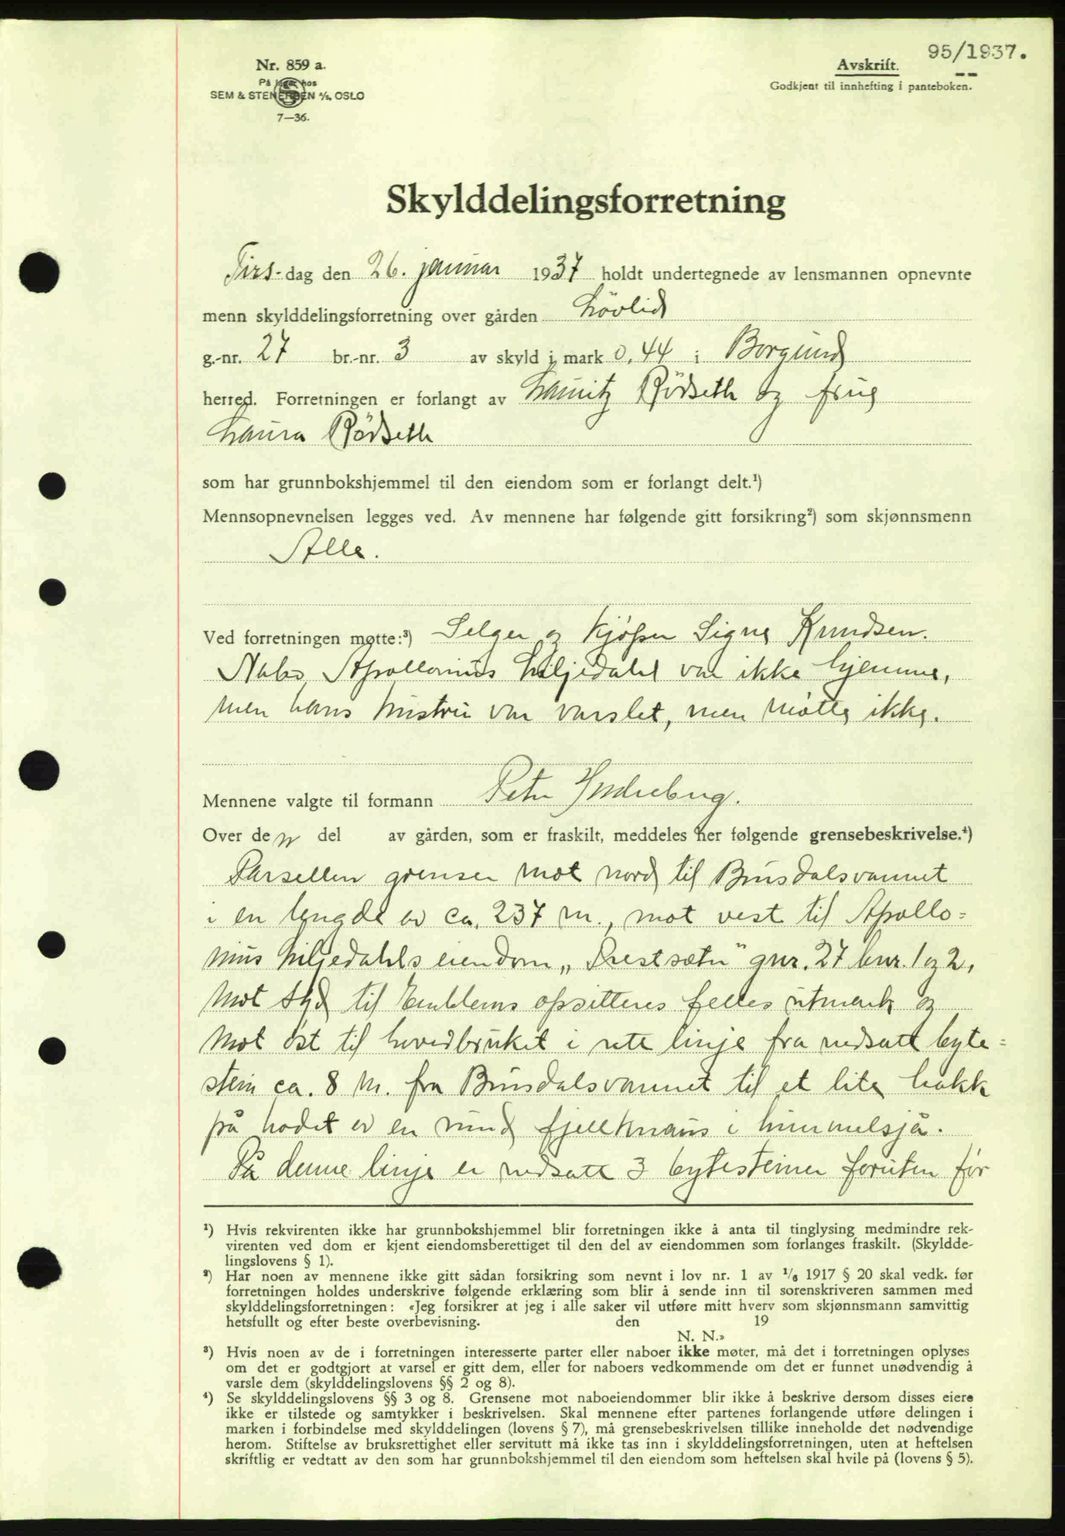 95/1937.
Nr. 859 a.
På lager hos
SEM & STENERSEN A/S, OSLO
7—36.
Avskrift.
Godkjent til innhefting i panteboken.
Skylddelingsforretning
Tirs-dag den 26. januar 1937 holdt undertegnede av lensmannen opnevnte
menn skylddelingsforretning over gården Lövlid
g.-nr. 27 br.-nr. 3 av skyld i mark 0,44 i Borgund
herred. Forretningen er forlangt av Lauritz Rödseth og frue
Laura Rödseth
som har grunnbokshjemmel til den eiendom som er forlangt delt.¹)
Mennsopnevnelsen legges ved. Av mennene har følgende gitt forsikring²) som skjønnsmenn
Alle.
Ved forretningen møtte:³) Selger og kjøper Signe Knudsen.
Nabo, Apollonius Liljedahl var ikke hjemme,
men hans hustru var varslet, men møtte ikke.
Mennene valgte til formann Peter Indrebug.
Over den del av gården, som er fraskilt, meddeles her følgende grensebeskrivelse.⁴)
Parsellen grenser mot nord til Brusdalsvannet
i en lengde av ca. 237 m., mot vest til Apollo=
nius Liljedahls eiendom „Prestsætr" gnr. 27 bnr. 1 og 2,
mot syd til Emblems opsitteres felles utmark og
mot öst til hovedbruket i rett linje fra nedsatt byte=
stein ca. 8 m. fra Brusdalsvannet til et lite hakk
på hodet av en rund fjellknaus i himmelsjå.
På denne linje er nedsatt 3 bytesteiner foruten før
¹) Hvis rekvirenten ikke har grunnbokshjemmel blir forretningen ikke å anta til tinglysing medmindre rek-
virenten ved dom er kjent eiendomsberettiget til den del av eiendommen som forlanges fraskilt. (Skyldde-
lingslovens § 1).
²) Har noen av mennene ikke gitt sådan forsikring som nevnt i lov nr. 1 av 1/6 1917 § 20 skal vedk. før
forretningen holdes underskrive følgende erklæring som blir å sende inn til sorenskriveren sammen med
skylddelingsforretningen: «Jeg forsikrer at jeg i alle saker vil utføre mitt hverv som skjønnsmann samvittig
hetsfullt og efter beste overbevisning. den 19
N. N.»
³) Hvis noen av de i forretningen interesserte parter eller naboer ikke møter, må det i forretningen oplyses
om det er godtgjort at varsel er gitt dem, eller for naboers vedkommende om det er funnet unødvendig å
varsle dem (skylddelingslovens §§ 2 og 8).
⁴) Se skylddelingslovens §§ 3 og 8. Grensene mot naboeiendommer blir ikke å beskrive dersom disses eiere
ikke er tilstede og samtykker i beskrivelsen. Skal mennene efter partenes forlangende utføre delingen i
marken i forbindelse med skylddelingen (lovens § 7), må grensebeskrivelsen tillike inneholde det nødvendige
herom. Stiftelse av bruksrettighet eller servitutt må ikke tas inn i skylddelingsforretningen, uten at heftelsen
skriftlig er vedtatt av den som har grunnbokshjemmel til den eiendom som heftelsen skal hvile på (lovens § 5).